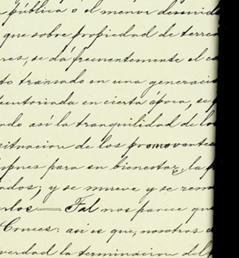 pública o el menor descuido
que sobre propiedad de terre
res, se dá frecuentemente el ca
to transado en una generacio
ecutoriada en cierta época, se
do así la tranquilidad de lo
situacion de los promovente
para su bienestar, la p
ados; y se mueve y se remo
— Tal nos parece que
Cruces: asi es que, nosotros
verdad la terminacion del p